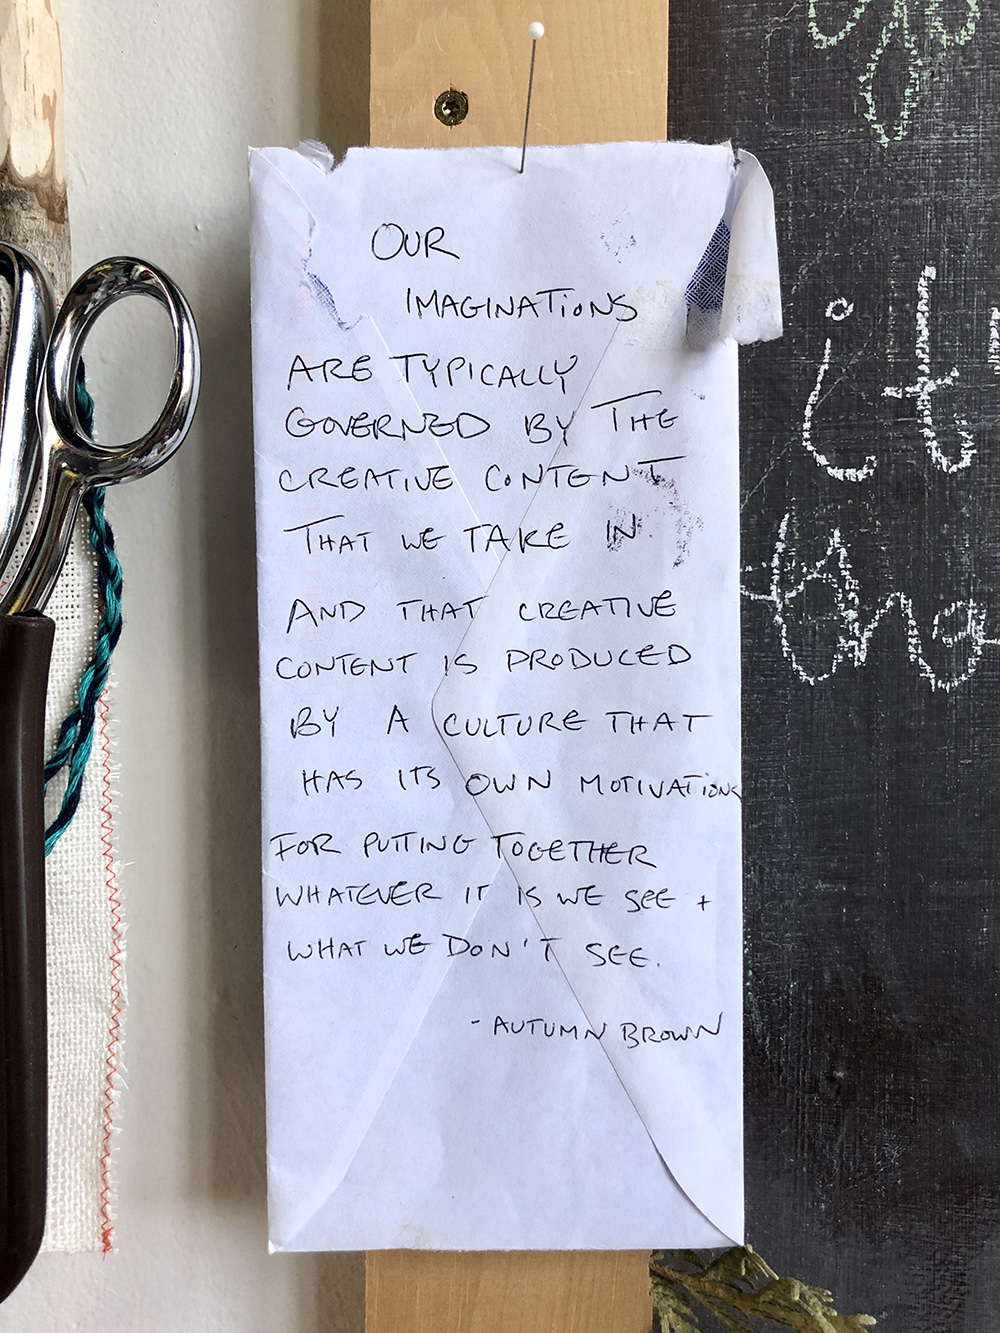 OUR
IMAGINATIONS
ARE TYPICALLY
GOVERNED BY THE
CREATIVE CONTENT
THAT WE TAKE IN
AND THAT CREATIVE
CONTENT IS PRODUCED
BY A CULTURE THAT
HAS ITS OWN MOTIVATIONS
FOR PUTTING TOGETHER
WHATEVER IT IS WE SEE +
WHAT WE DON'T SEE.
- AUTUMN BROWN
it